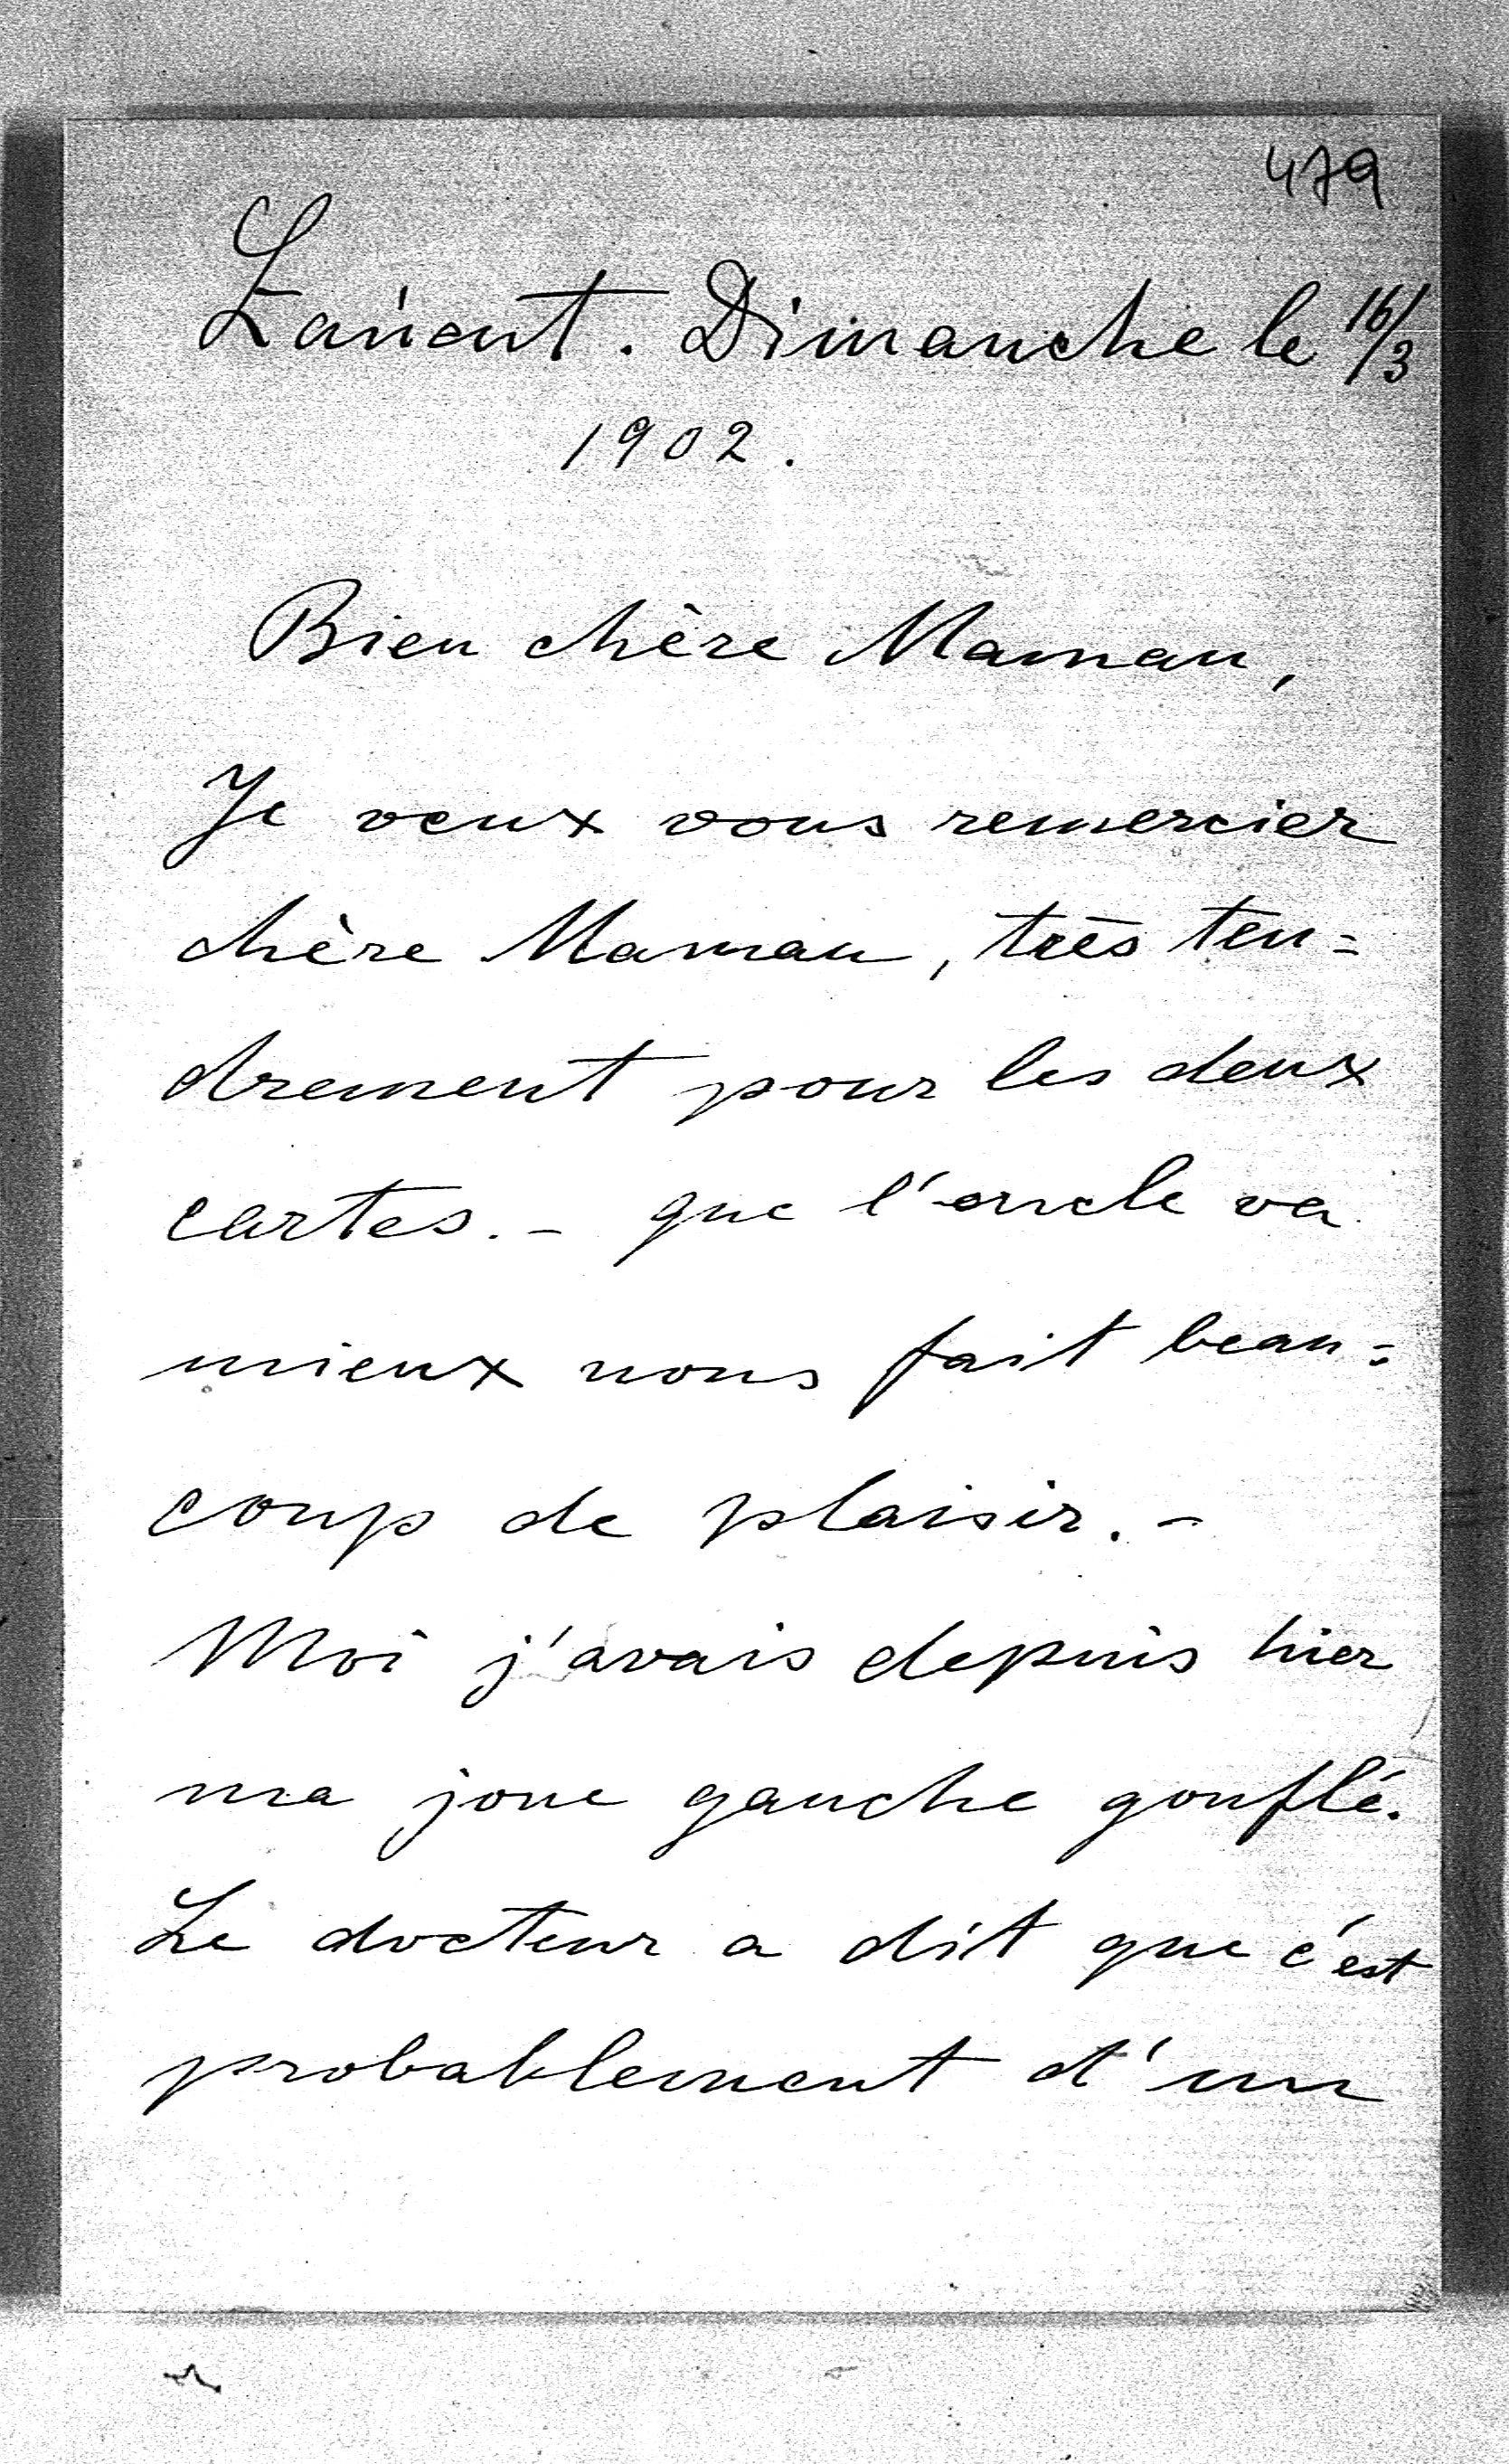 479
Łańcut. Dimanche le 16/3
1902.
Bien chère Maman,
Je veux vous remercier
chère Maman, très ten=
drement pour les deux
cartes. - que l'oncle va
mieux nous fait beau=
coup de plaisir. -
Moi j'avais depuis hier
ma joue gauche gouflé.
Le docteur a dit que c'est
probablement d'un